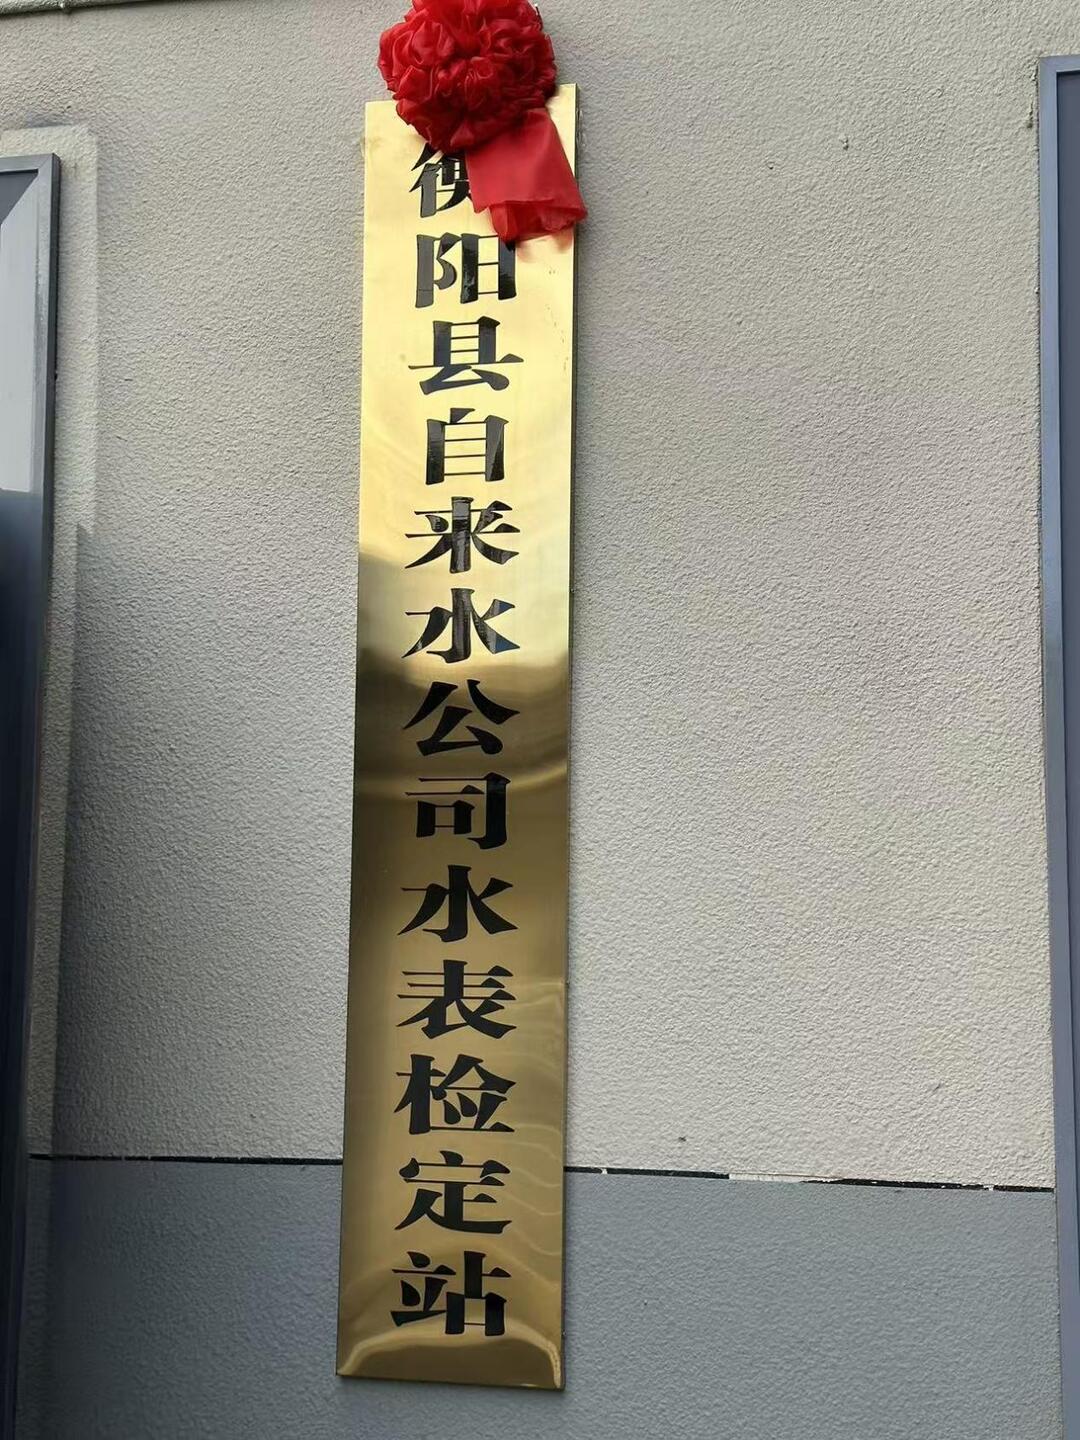 衡阳县自来水公司水表检定站